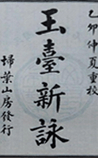 乙卯仲夏重校
玉臺新詠
掃葉山房發行